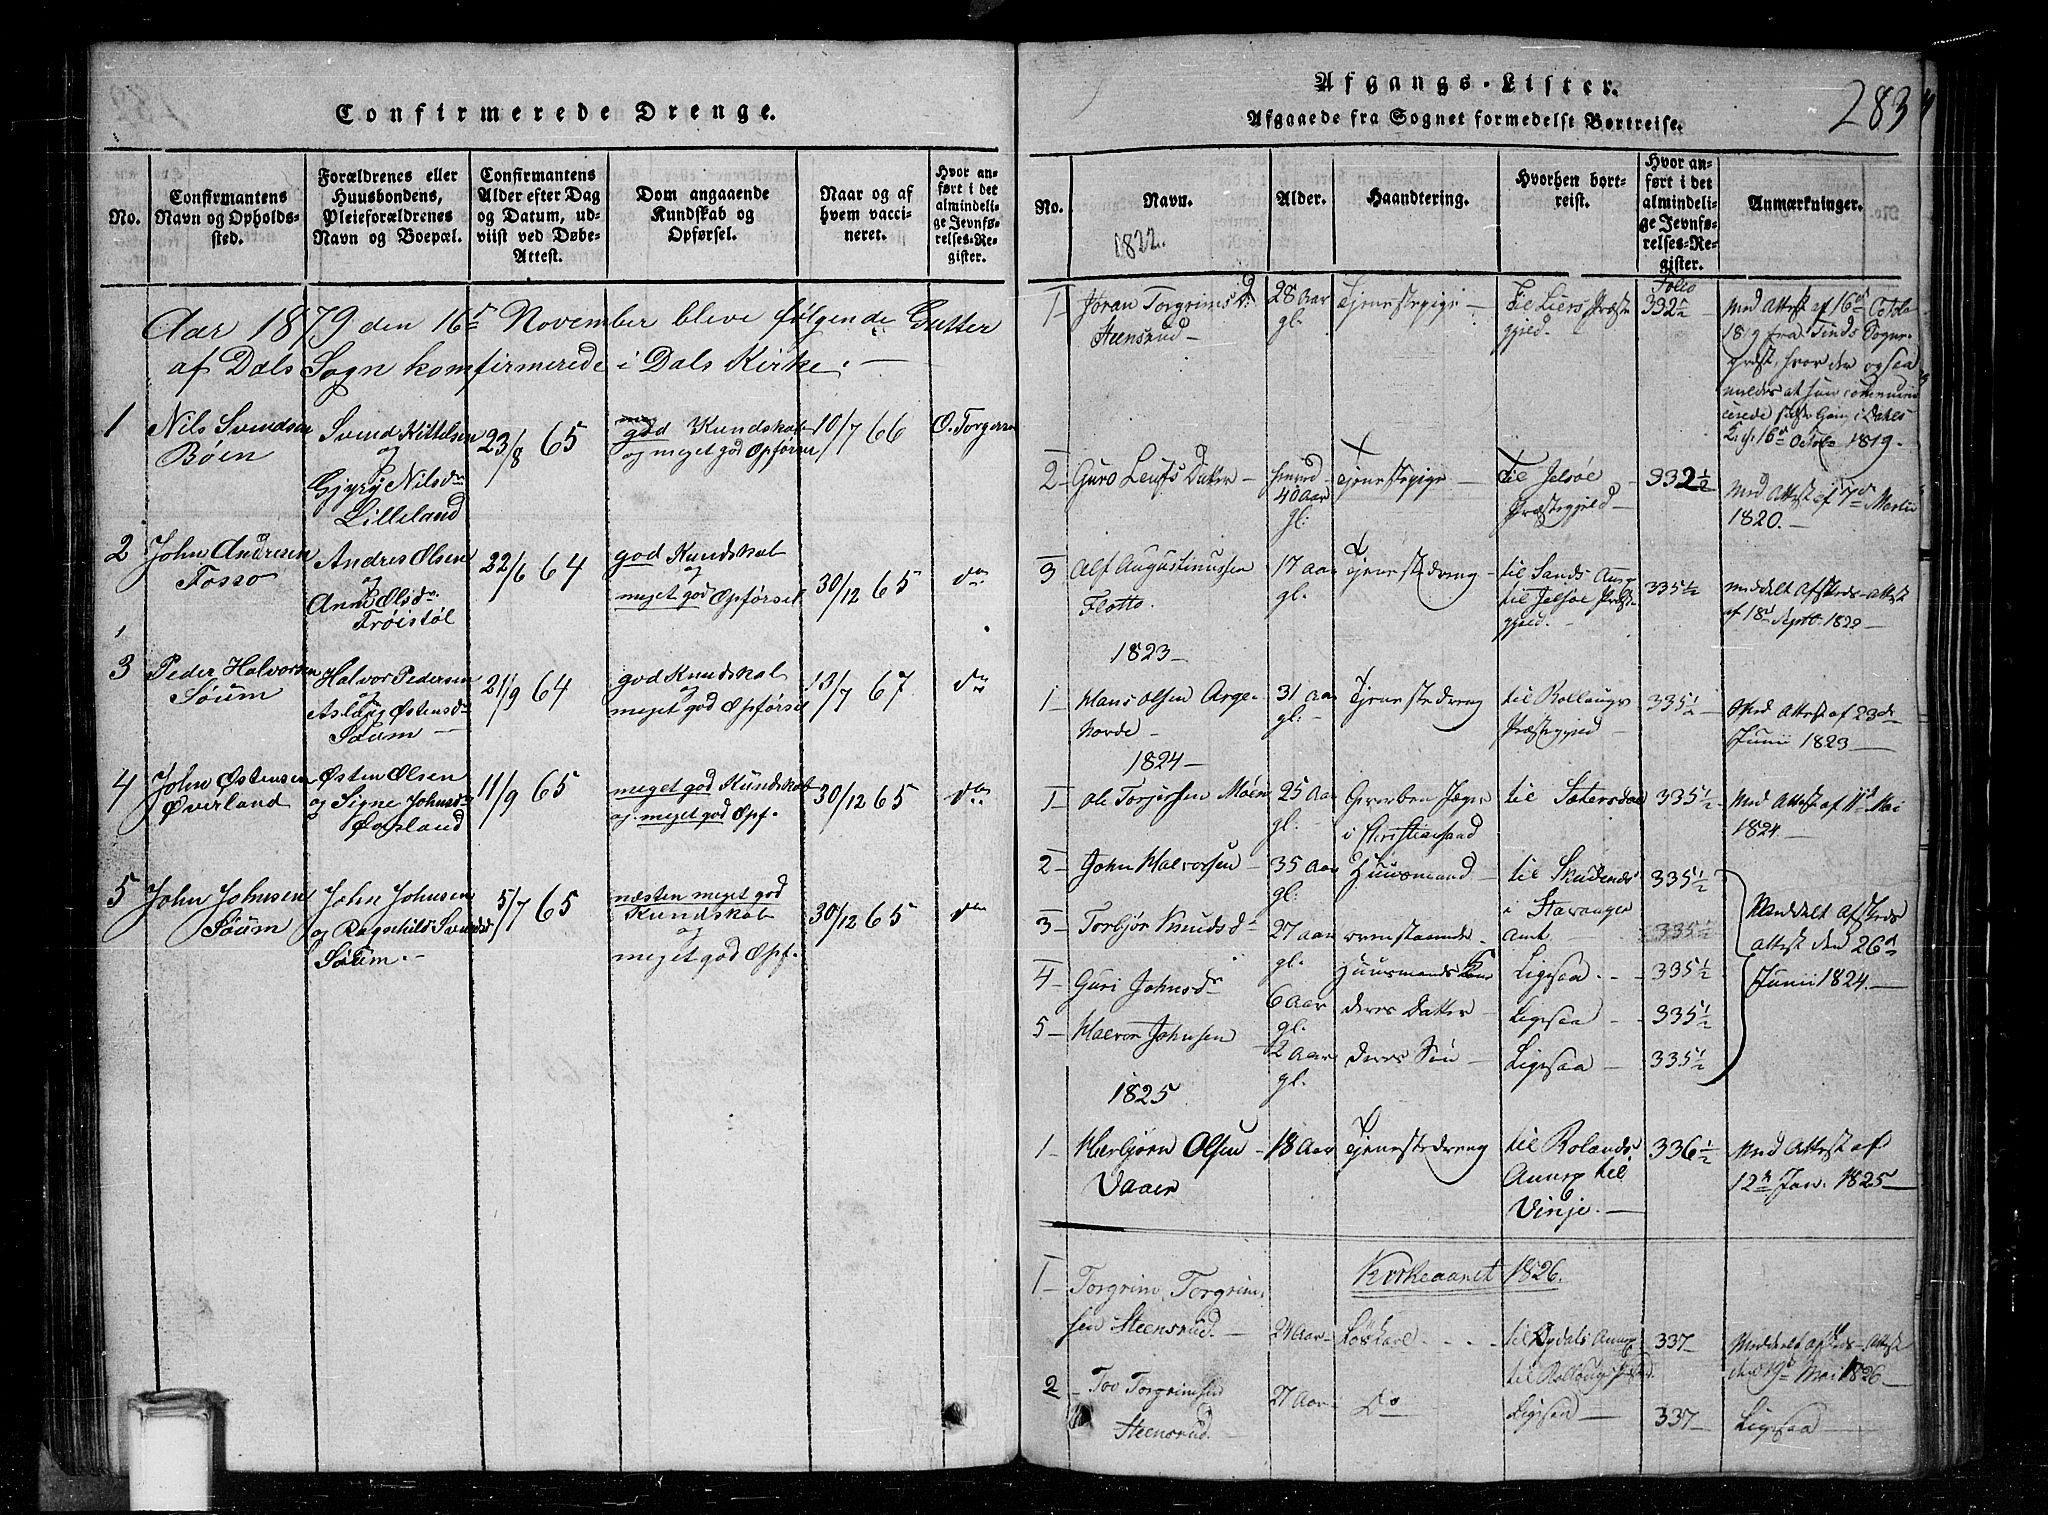 Confirmerede Drenge.
No.
Confirmantens
Navn og Opholds-
sted.
Forældrenes eller
Huusbondens,
Pleieforældrenes
Navn og Boepæl.
Confirmantens
Alder efter Dag
og Datum, ud-
viist ved Døbe-
Attest.
Dom angaaende
Kundskab og
Opførsel.
Naar og af
hvem vacci-
neret.
Hvor an-
ført i det
almindeli-
ge Jevnfø-
relses-Re-
gister.
Aar 1879 den 16de November bleve følgende Gutter
af Dals Sogn konfirmerede i Dals Kirke. —
1
Nils Svendsen
Bøen
Svend Kittelsen
og
Gjyri Nilsdr
Lilleland
23/8 65
god Kundskab
og meget god Opførsel
10/7 66
O. Torgersen
2
John Andresen
Fosso
Andres Olsen
og
Anne Olsdr
Trøistøl
22/6 64
god Kundskab
og
meget god Opførsel
30/12 65
do
3
Peder Halvorsen
Søum
Halvor Pedersen
og
Aslaug Østensdr
Søum —
21/9 64
god Kundskab
og
meget god Opførsel
13/7 67
do
4
John Østensen
Øverland
Østen Olsen
og Signe Johnsdr
Øverland
11/9 65
meget god Kundskab
og meget god Opf.
30/12 65
do
5
John Johnsen
Søum
John Johnsen
og Ragnhild Svendsd
Søum. —
5/7 65
næsten meget god
Kundskab
og
meget god Opf.
30/12 65
do
Afgangs-Lister.
Afgaaede fra Sognet formedelst Bortreise.
283
No.
Navn.
Alder.
Haandtering.
Hvorhen bort-
reist.
Hvor an-
ført i det
almindeli-
ge Jevnfø-
relses-Re-
gister.
Anmærkninger.
1822.
Folio
1
Jøran Torgrims D.
Steensrud —
28 Aar
gl.
Tjenestepige
til Liers Præste
gjeld.
332
Med Attest af 16de Octbr
1819 fra Tinds Sogne-
præst, hvor der ogsaa
meldes at hun communi
cerede sidste Gang i Dahls
K. d. 16de Octbr 1819.
2
Guro Leufs Datter
40 Aar
gl.
Tjenestepige
til Jelsøe
Præstegjeld —
332 1/2
Med Attest af 7de Martii
1820. —
3
Alf Augustinussen
Flotto.
17 Aar
gl.
Tjenestedreng
til Sands Annex
til Jelsøe Præste-
gjeld. —
335 1/2
Meddelt Afskeds-Attest
af 18de Septb 1822 —
1823 —
1
Hans Olsen Arge-
Norde —
31 Aar
gl:
Tjenestedreng
til Rollaugs
Præstegjeld —
335 1/2
Med Attest af 23de
Junii 1823 —
1824 —
1
Ole Torjersen Moen
25 Aar
gl.
i Christiansand
til Sætersdal
335 1/2
Med Attest af 11te Mai
1824 —
2
John Halvorsen —
35 Aar
gl:
Huusmand
til Skudenes
i Stavanger
Amt
335 1/2
Meddelt Afskeds
attest den 26de
Junii 1824. —
3
Torbjør Knudsd
27 Aar
gl.
ovenstaaende
Huusmands Kone
335 1/2
4
Guri Johnsdr
6 Aar
gl.
deres Datter
Ligesaa. —
335 1/2
5
Halvor Johnsen
2 Aar
gl.
deres Søn —
Ligesaa —
335 1/2
Ligesaa —
335 1/2
1825
1
Herbjørn Olsen
Vaaer
18 Aar
Tjenestedreng
til Rolands
Annex til
Vinje. —
336 1/2
Med Attest af
12te Jan. 1825 —
Kirkeaaret 1826.
1
Torgrim Torgrim-
sen Steensrud. —
24 Aar
Løskarl
til Opdals Annex
til Rollougs Præsteg.
337
Meddelt Afskeds-Attest
den 19de Mai 1826 —
2
Tov Torgrimsen
Steensrud.
27 Aar
Do
Ligesaa —
337 —
Ligesaa —